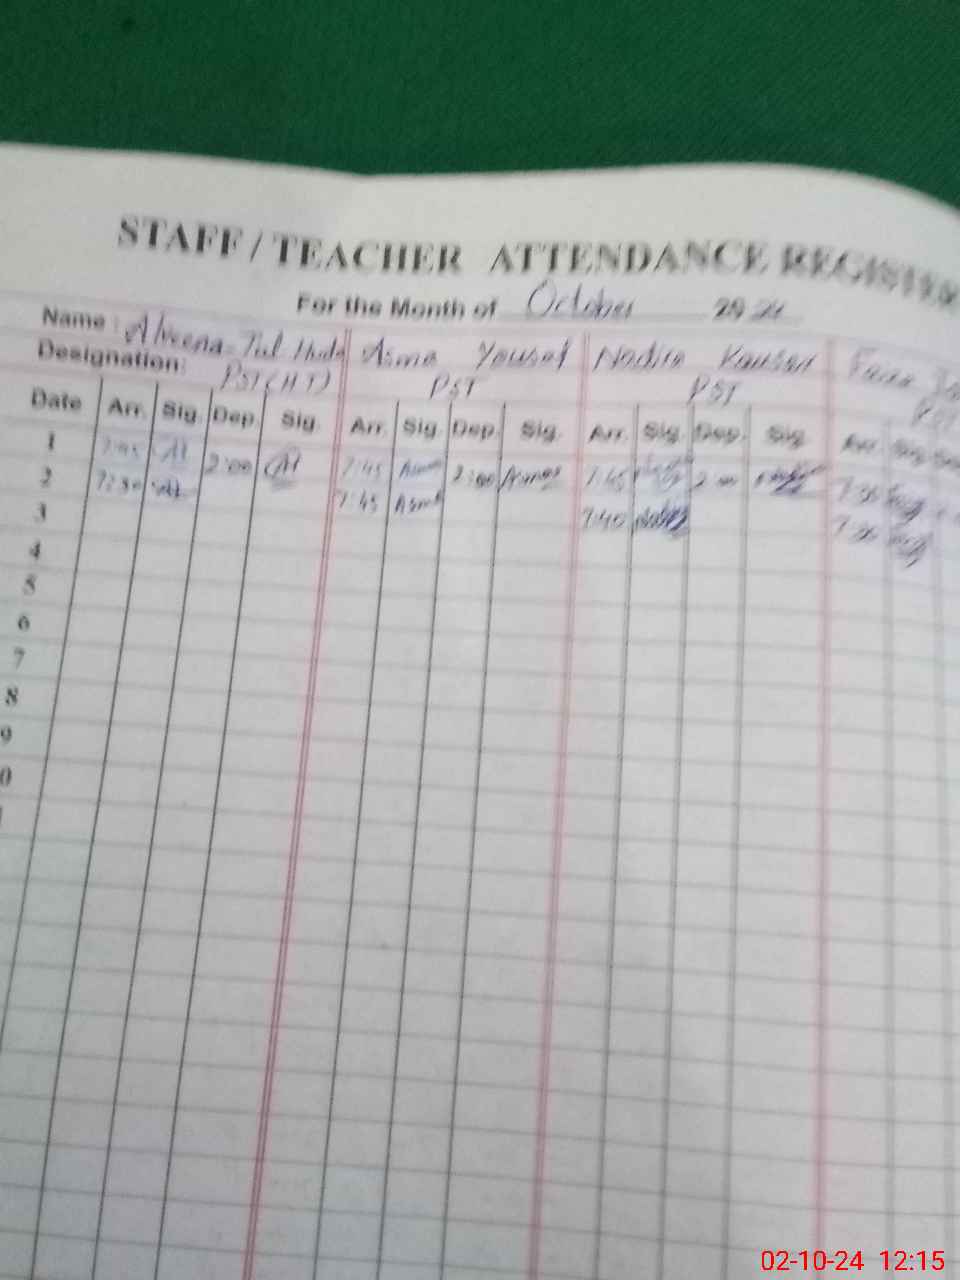 STAFF / TEACHER ATTENDANCE REGISTER
For the Month of October 20 24
Name : Tul Huda Asma Yousaf Nadia Kausar
Designation: PST (H T) PST PST PST
Date Arr. Sig. Dep. Sig. Arr. Sig. Dep. Sig. Arr. Sig. Dep. Sig. Arr. Sig.
1 7:45 2:00 7:45 Asma 2:00 Asma 7:45 2:00
2 7:30 7:45 Asma 7:40
3
4
5
6
7
8
9
0
02-10-24 12:15